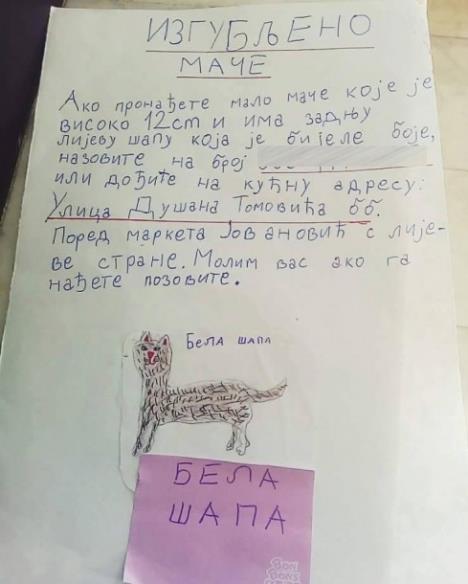 ИЗГУБЉЕНО
МАЧЕ
Ако пронађете мало маче које је
високо 12cm и има задњу
лијеву шапу која је бијеле боје,
назовите на број
или дођите на кућну адресу:
Улица Душана Томовића ББ.
Поред маркета Јовановић с лије-
ве стране. Молим вас ако га
нађете позовите.
Бела шапа
БЕЛА
ШАПА
BON
BONS